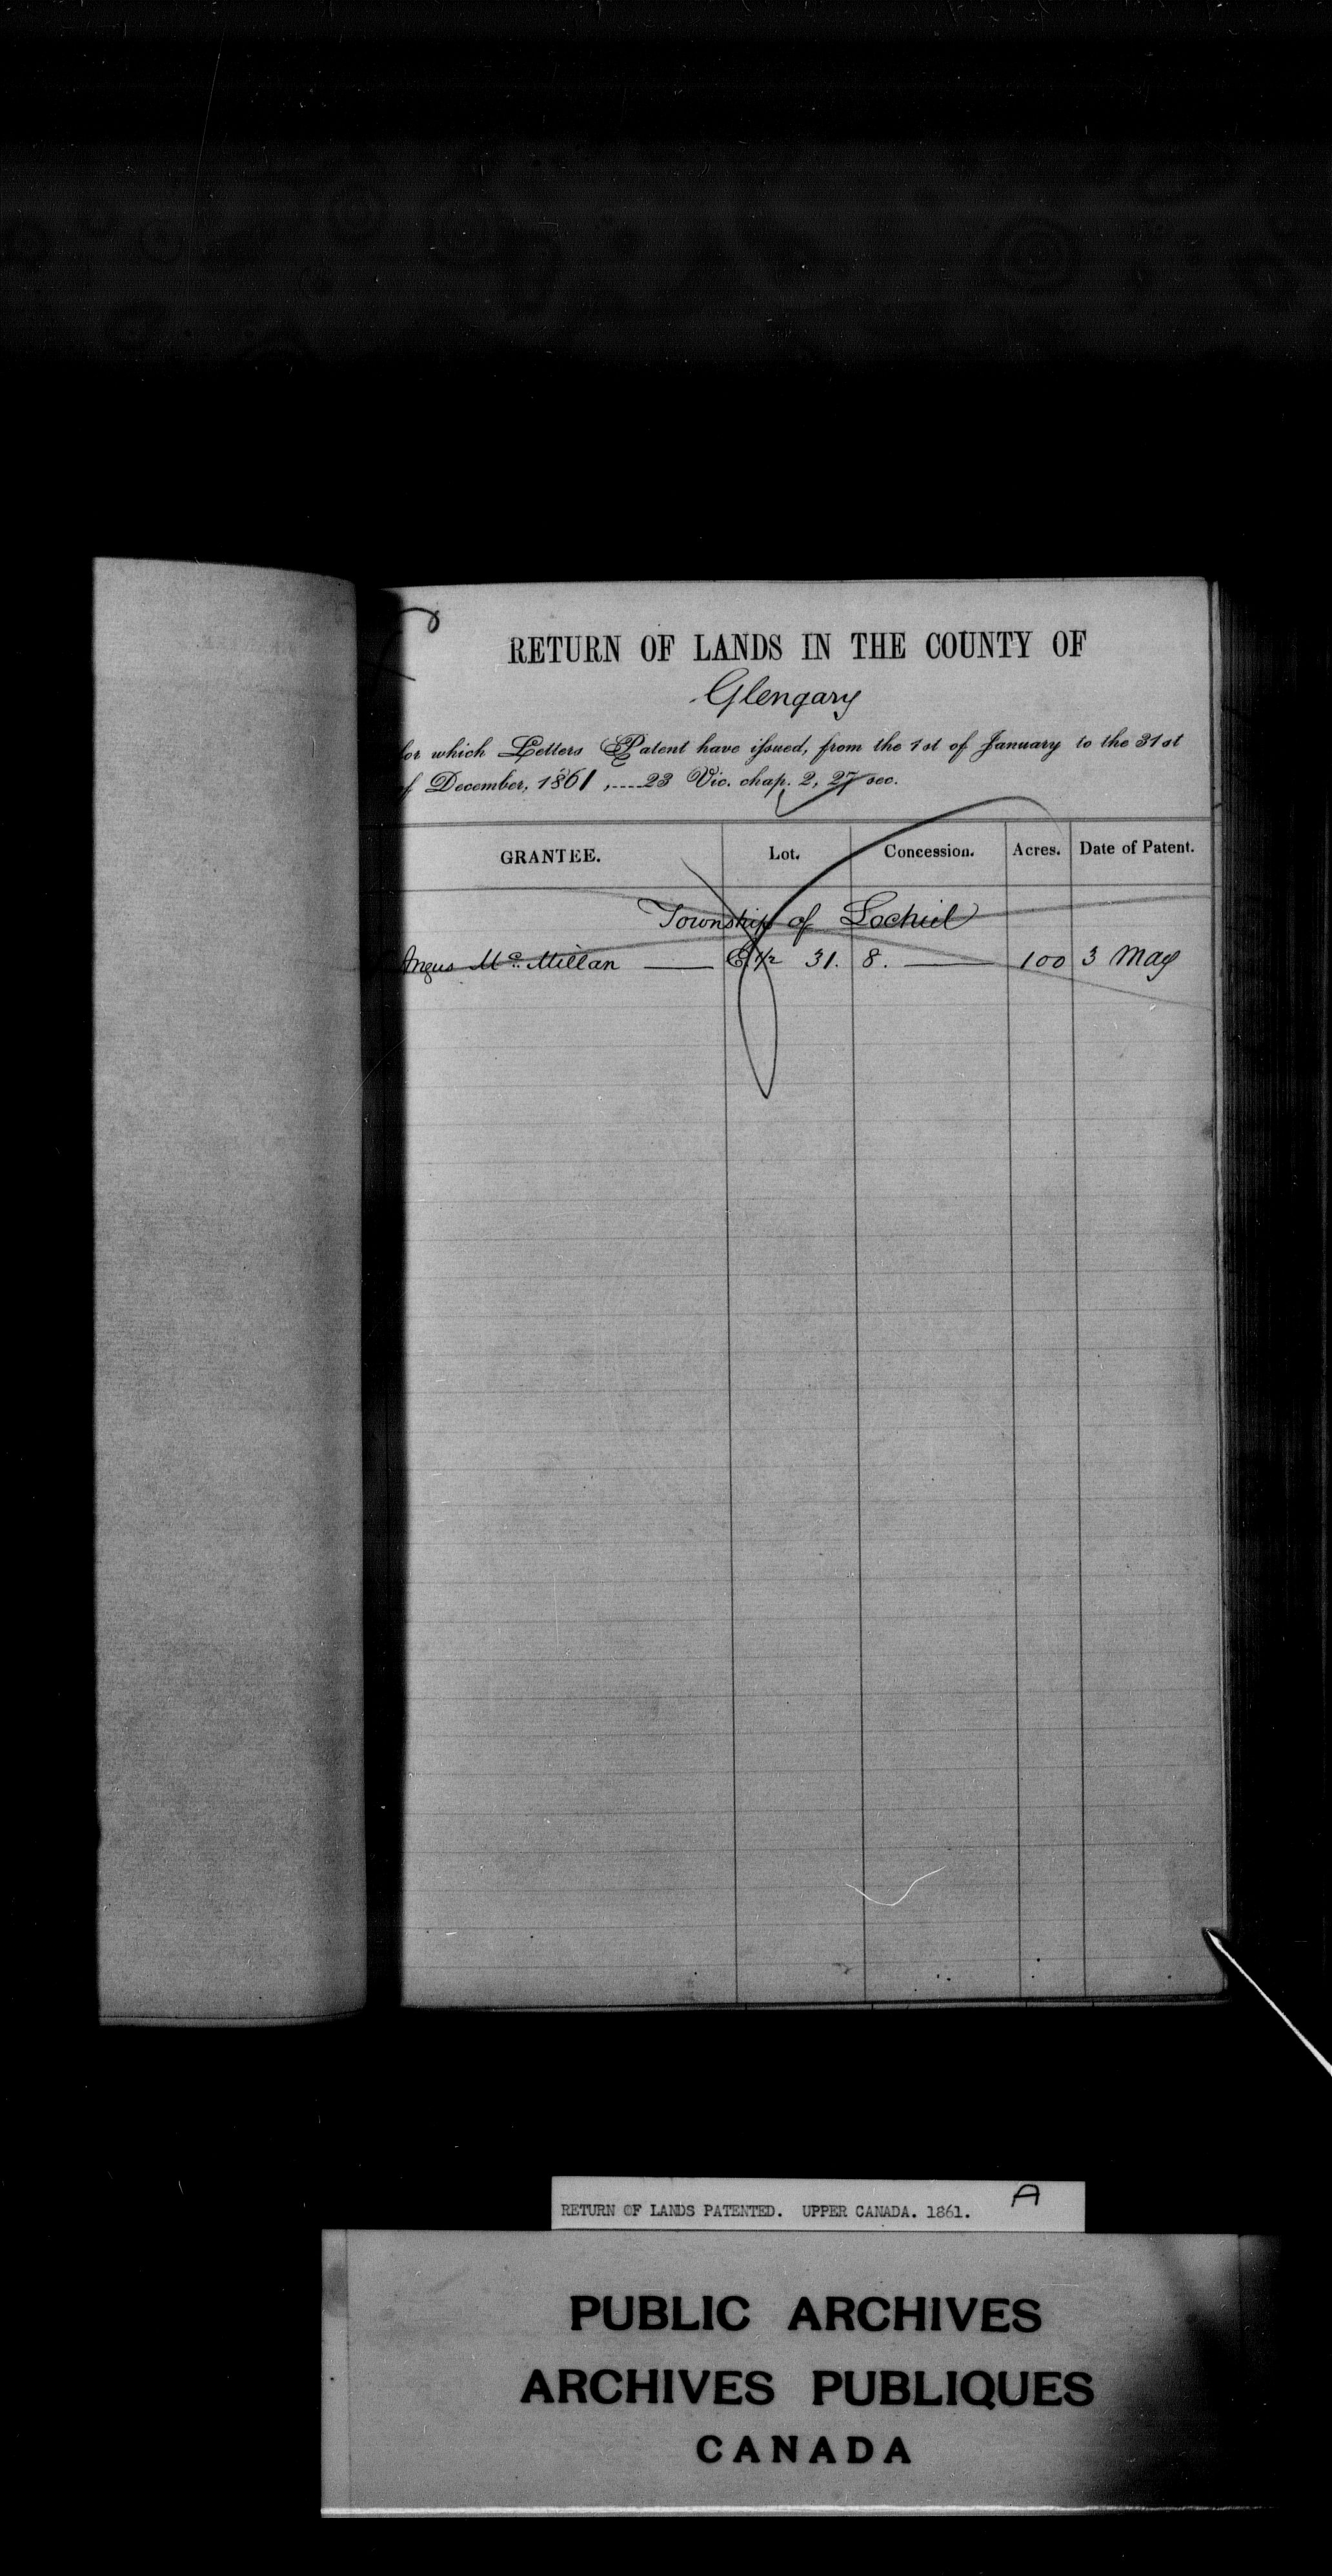 RETURN OF LANDS IN THE COUNTY OF
Glengary
for which Letters Patent have issued, from the 1st of January to the 31st
of December, 1861, ....23 Vic. chap. 2, 27 sec.
GRANTEE. Lot. Concession. Acres. Date of Patent.
Township of Lochiel
Angus Mc. Millan —— E 1/2 31. 8. —— 100 3 May
RETURN OF LANDS PATENTED. UPPER CANADA. 1861. A
PUBLIC ARCHIVES
ARCHIVES PUBLIQUES
CANADA